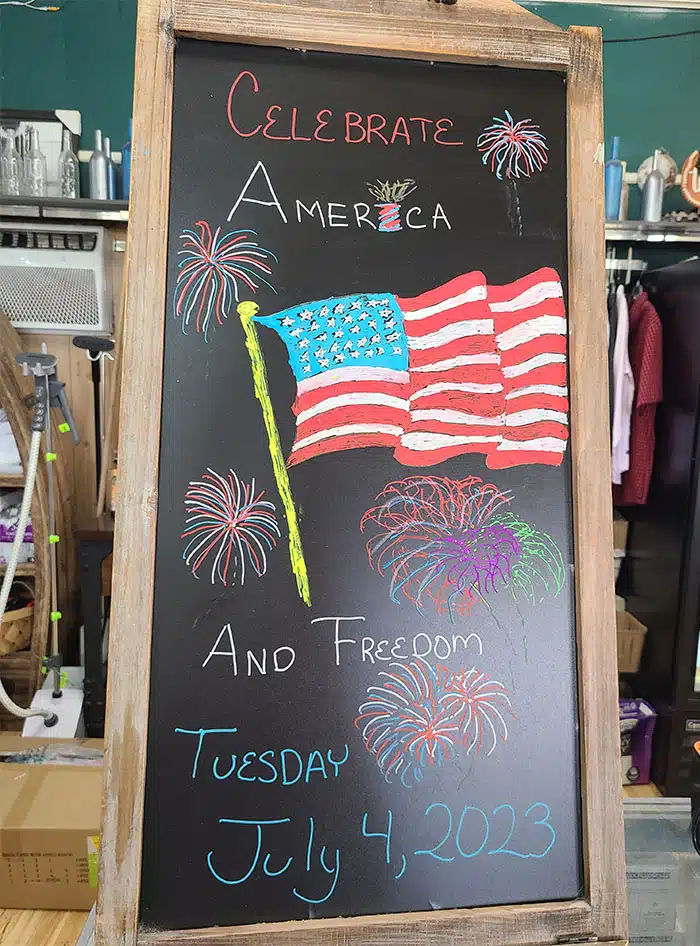 CELEBRATE
AMERICA
AND FREEDOM
TUESDAY
July 4, 2023